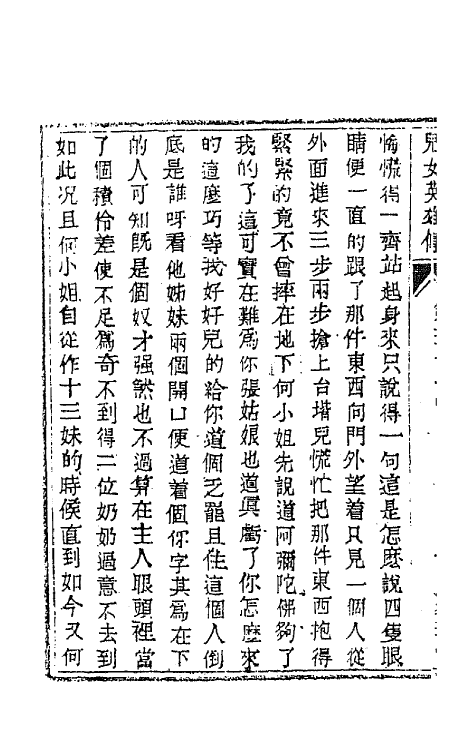 兒女英雄傳
慟慌得一齊站起身來只說得一句這是怎麽說四隻眼
睛便一面的跟了那件東西向門外望着只見一個人從
外面進來三步兩步搶上台堦兒慌忙把那件東西抱得
緊緊的竟不曾摔在地下何小姐先說道阿彌陀佛夠了
我的了這可實在難爲你張姑娘也道眞虧了你怎麽來
的這麽巧等我好好兒的給你道個乏罷且住這個人倒
底是誰呀看他姊妹兩個開口便道着個你字其爲在下
的人可知旣是個奴才强煞也不過算在主人眼頭裡當
了個積伶差使不足爲奇不到得二位奶奶過意不去到
如此况且何小姐自從作十三妹的時候直到如今又何